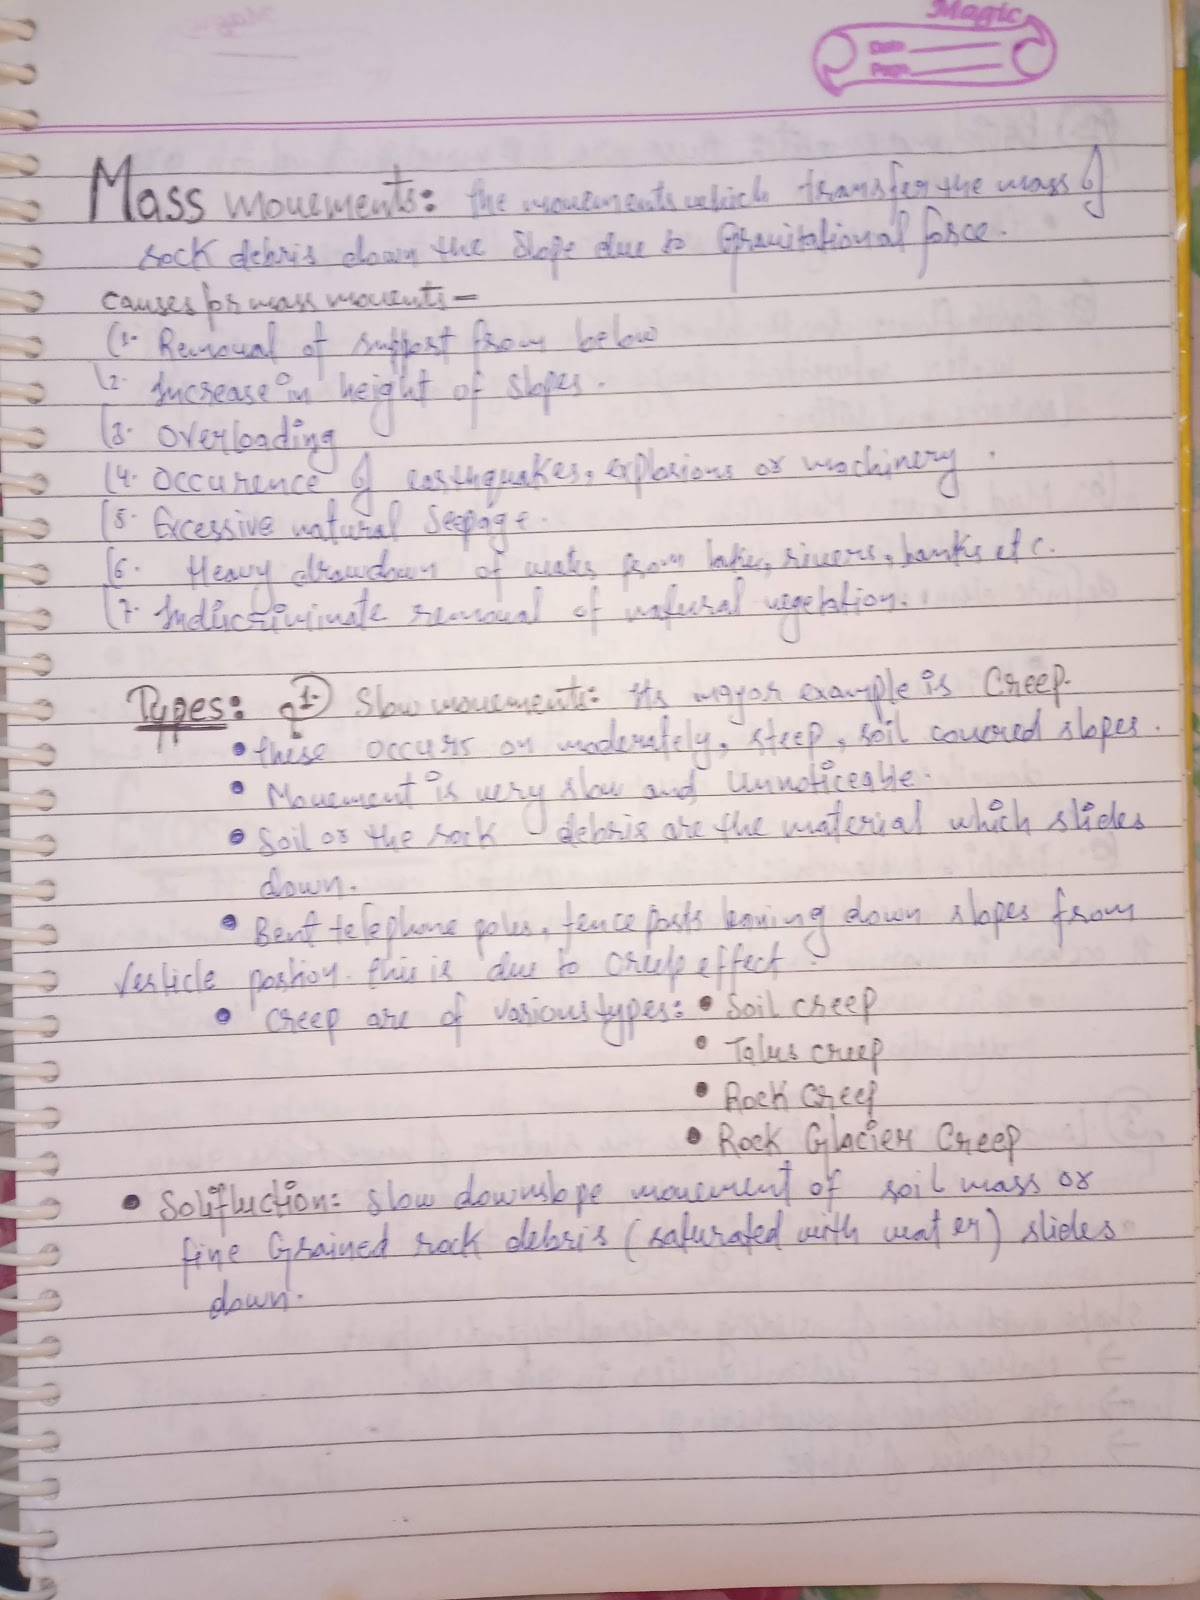 Magic
Date
Page
Mass movements: the movements which transfer the mass of
rock debris down the slope due to Gravitational force.
Causes for mass movents -
(1. Removal of support from below
(2. Increase in height of slopes.
(3. Overloading
(4. Occurence of earthquakes, explosions or machinery.
(5. Excessive natural Seepage.
(6. Heavy drawdown of water from lakes, rivers, banks etc.
(7. Indiscriminate removal of natural vegetation.
Types: 1. Slow movements: Its major example is Creep.
• these occurs on moderately, steep, soil covered slopes.
• Movement is very slow and Unnoticeable.
• Soil or the rock debris are the material which slides
down.
• Bent telephone poles, fence posts leaning down slopes from
verticle this is due to creep effect.
• Creep are of various types: • Soil creep
• Talus creep
• Rock Creep
• Rock Glacier Creep
• Solifluction: Slow downslope movement of soil mass or
fine Grained rock debris (saturated with water) slides
down.